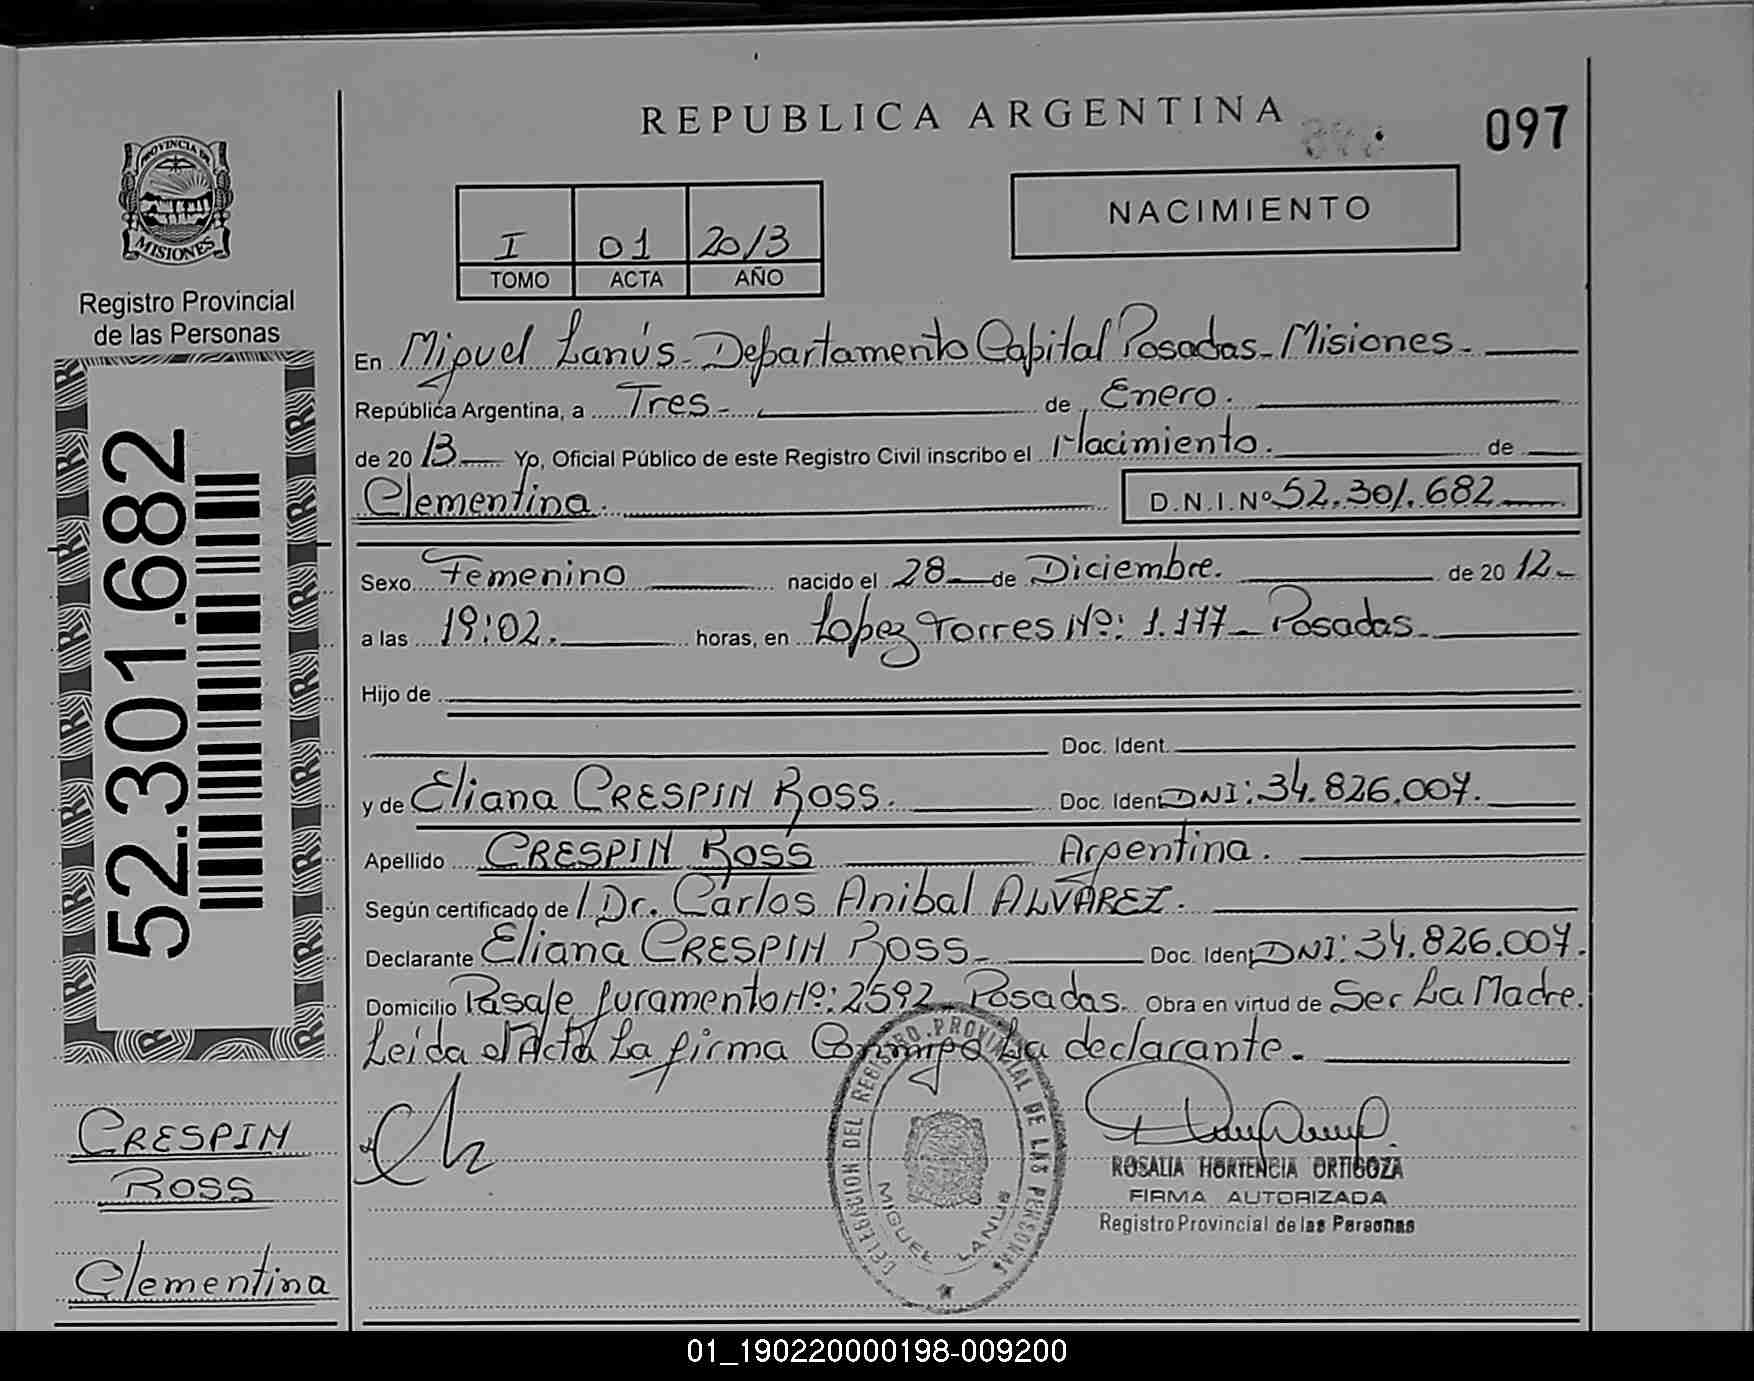 REPUBLICA ARGENTINA
097
NACIMIENTO
I 01 2013
TOMO ACTA AÑO
PROVINCIA DE MISIONES
Registro Provincial
de las Personas
52.301.682
En Miguel Lanús - Departamento Capital Posadas - Misiones.
República Argentina, a Tres de Enero.
de 2013 Yo, Oficial Público de este Registro Civil inscribo el Nacimiento. de
Clementina. D.N.I.Nº 52.301.682
Sexo Femenino nacido el 28 de Diciembre. de 2012
a las 19:02. horas, en Lopez Torres Nº: 1.177 - Posadas.
Hijo de
Doc. Ident.
y de Eliana CRESPIN ROSS. Doc. Ident DNI: 34.826.007.
Apellido CRESPIN ROSS Argentina.
Según certificado de / Dr. Carlos Anibal ALVAREZ.
Declarante Eliana CRESPIN ROSS Doc. Ident DNI: 34.826.007.
Domicilio Pasaje Juramento Nº: 2592 Posadas. Obra en virtud de Ser La Madre.
Leída el Acta La firma Conmigo La declarante.
DELEGACION DEL REGISTRO PROVINCIAL DE LAS PERSONAS
MIGUEL LANUS
ROSALIA HORTENCIA ORTIGOZA
FIRMA AUTORIZADA
Registro Provincial de las Personas
CRESPIN
ROSS
Clementina
01_190220000198-009200